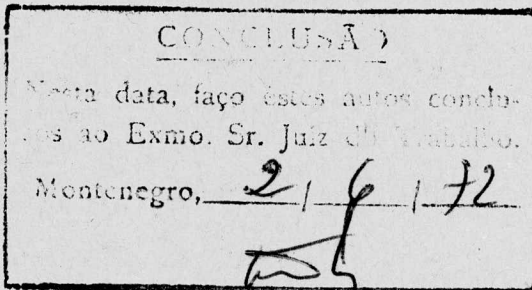 CONCLUSÃO
Nesta data, faço estes autos conclu-
sos ao Exmo. Sr. Juiz do Trabalho.
Montenegro, 2 / 6 / 72